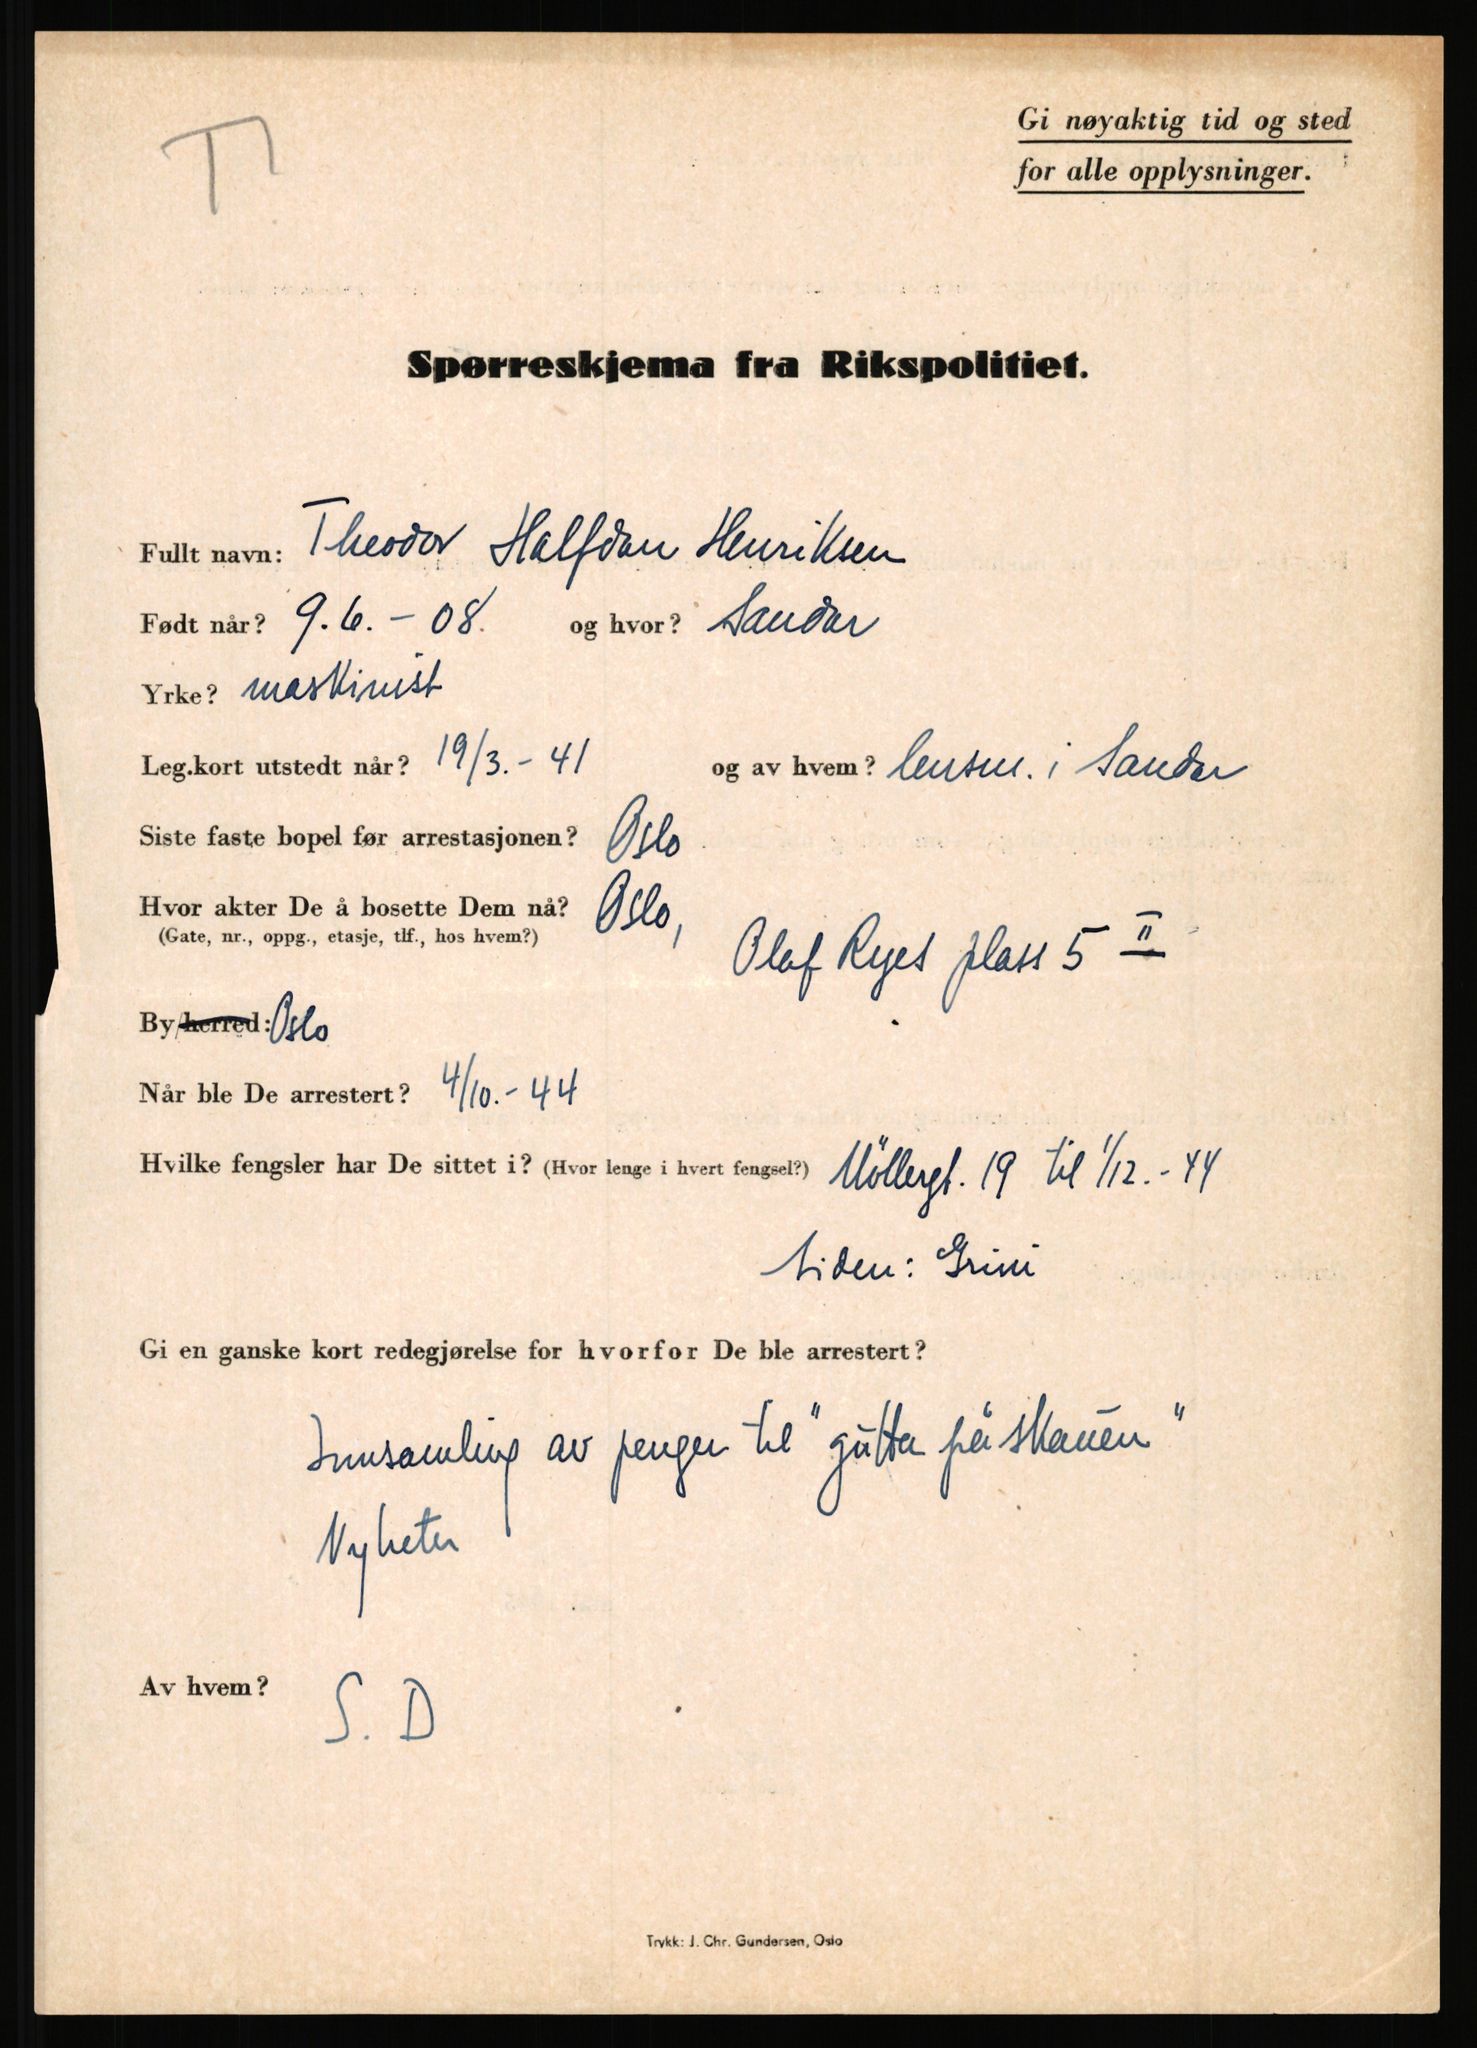 T
Gi nøyaktig tid og sted
for alle opplysninger.
Spørreskjema fra Rikspolitiet.
Fullt navn: Theodor Halfdan Henriksen
Født når? 9.6.-08. og hvor? Sandar
Yrke? maskinist
Leg.kort utstedt når? 19/3.-41 og av hvem? lensm. i Sandar
Siste faste bopel før arrestasjonen? Oslo
Hvor akter De å bosette Dem nå? Oslo,
(Gate, nr., oppg., etasje, tlf., hos hvem?) Olaf Ryes plass 5 II
By/herred: Oslo
Når ble De arrestert? 4/10.-44
Hvilke fengsler har De sittet i? (Hvor lenge i hvert fengsel?) Möllergt. 19 til 1/12.-44
siden: Grini
Gi en ganske kort redegjørelse for hvorfor De ble arrestert?
Innsamling av penger til "gutta på skauen"
Nyheter
Av hvem? S. D
Trykk: J. Chr. Gundersen, Oslo